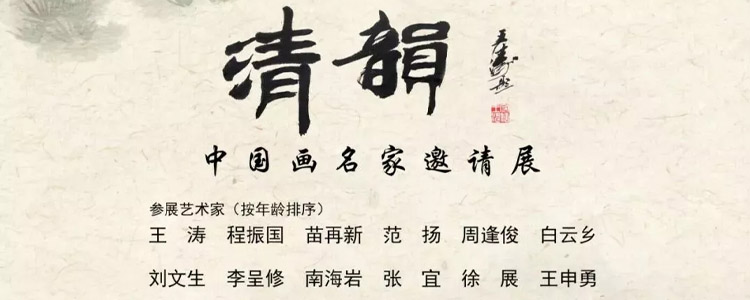 清韻
王涛题
中国画名家邀请展
参展艺术家（按年龄排序）
王　涛　程振国　苗再新　范　扬　周逢俊　白云乡
刘文生　李呈修　南海岩　张　宜　徐　展　王申勇